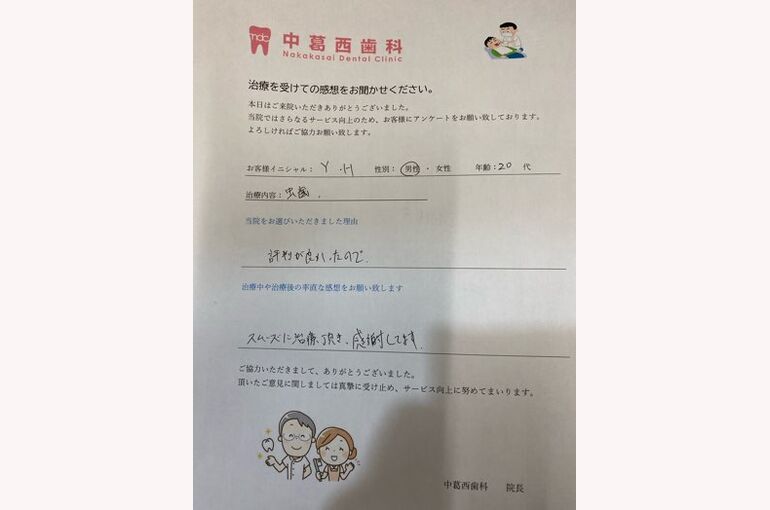 ndc 中葛西歯科
Nakakasai Dental Clinic
治療を受けての感想をお聞かせください。
本日はご来院いただきありがとうございました。
当院ではさらなるサービス向上のため、お客様にアンケートをお願い致しております。
よろしければご協力お願い致します。
お客様イニシャル： Y ・H 性別： 男性 ・ 女性 年齢：20 代
治療内容： 虫歯．
当院をお選びいただきました理由
評判が良かったので．
治療中や治療後の率直な感想をお願い致します
スムーズに治療頂き、感謝してます．
ご協力いただきまして、ありがとうございました。
頂いたご意見に関しましては真摯に受け止め、サービス向上に努めてまいります。
中葛西歯科 院長